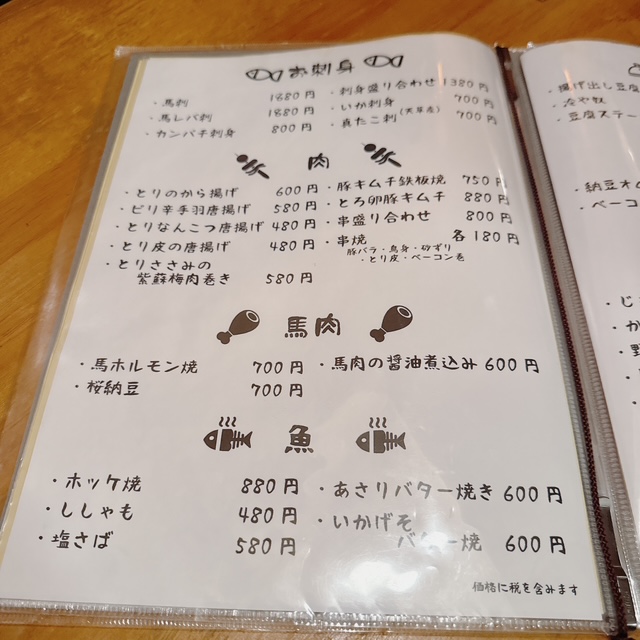 お刺身
・馬刺 1880円
・馬レバ刺 1880円
・カンパチ刺身 800円
・刺身盛り合わせ 1380円
・いか刺身 700円
・真たこ刺(天草産) 700円
肉
・とりのから揚げ 600円
・ピリ辛手羽唐揚げ 580円
・とりなんこつ唐揚げ 480円
・とり皮の唐揚げ 480円
・とりささみの
紫蘇梅肉巻き 580円
・豚キムチ鉄板焼 750円
・とろ卵豚キムチ 880円
・串盛り合わせ 800円
・串焼 各180円
豚バラ・鳥身・砂ずり
・とり皮・ベーコン巻
馬肉
・馬ホルモン焼 700円
・桜納豆 700円
・馬肉の醤油煮込み 600円
魚
・ホッケ焼 880円
・ししゃも 480円
・塩さば 580円
・あさりバター焼き 600円
・いかげそ
バター焼 600円
価格に税を含みます
・揚げ出し豆腐
・冷や奴
・豆腐ステー
・納豆オム
・ベーコ
・じ
・か
・野